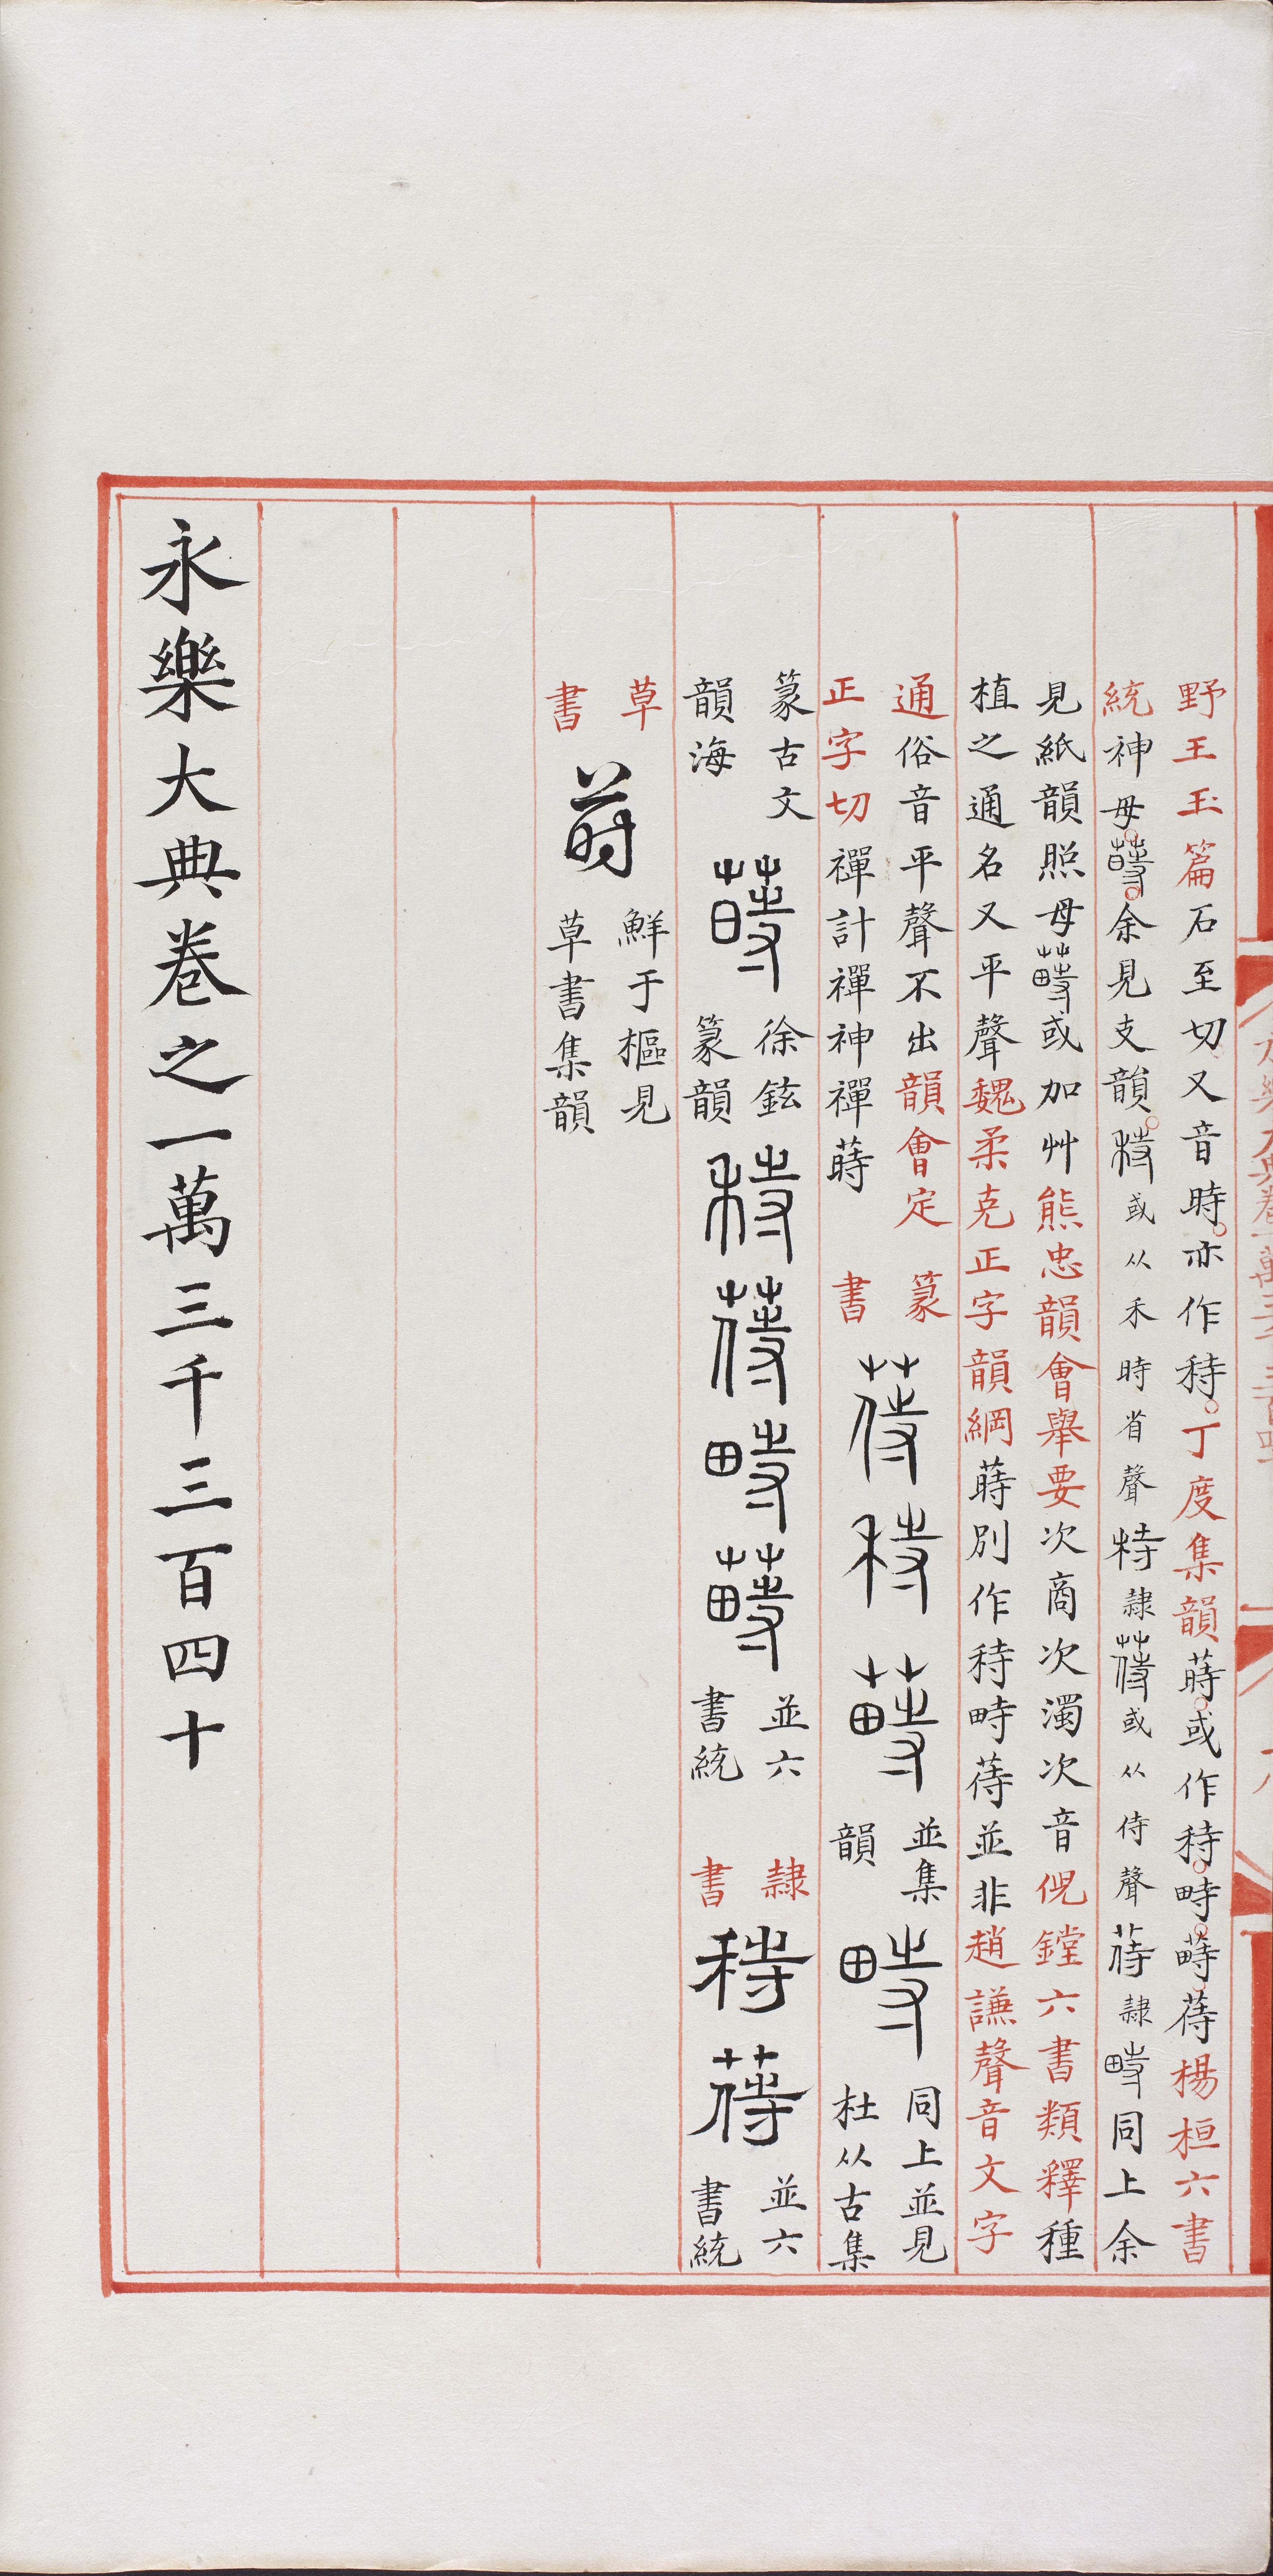 野王玉篇石至切又音時亦作秲丁度集韻蒔或作秲畤䔚𦯔楊桓六書
統神母蒔余見支韻秲或从禾時省聲秲隸𦯔或从侍聲𦯔隸畤同上余
見紙韻照母或加艸熊忠韻會舉要次商次濁次音倪鏜六書類釋種
植之通名又平聲魏柔克正字韻綱蒔別作秲畤𦯔並非趙謙聲音文字
通俗音平聲不出韻會定
正字切禪計禪神禪蒔
篆書
𦯔秲
並集韻
畤
同上並見杜从古集
篆古文韻海
蒔
徐鉉篆韻
秲𦯔畤
並六書統
隸書
秲𦯔
並六書統
草書
蒔
鮮于樞見草書集韻
永樂大典卷之一萬三千三百四十